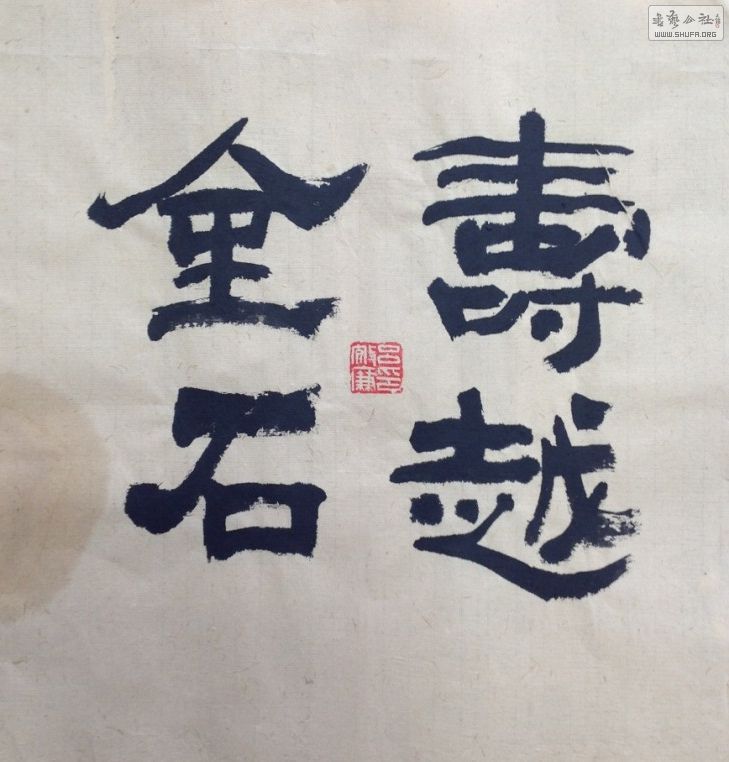 壽越
金石
書藝公社
WWW.SHUFA.ORG